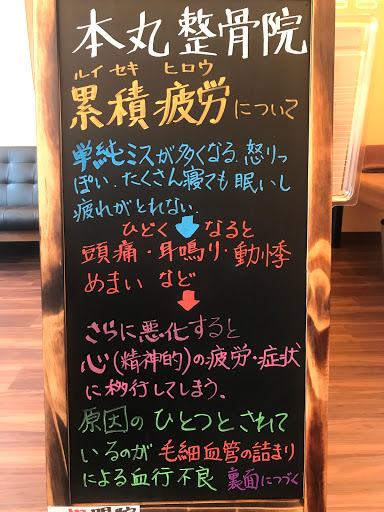 本丸整骨院
ルイセキ ヒロウ
累積疲労について
単純ミスが多くなる、怒りっ
ぽい、たくさん寝ても眠いし
疲れがとれない、
ひどく なると
頭痛・耳鳴り・動悸
めまい など
さらに悪化すると
心(精神的)の疲労・症状
に移行してしまう。
原因のひとつとされて
いるのが 毛細血管の詰まり
による血行不良 裏面につづく